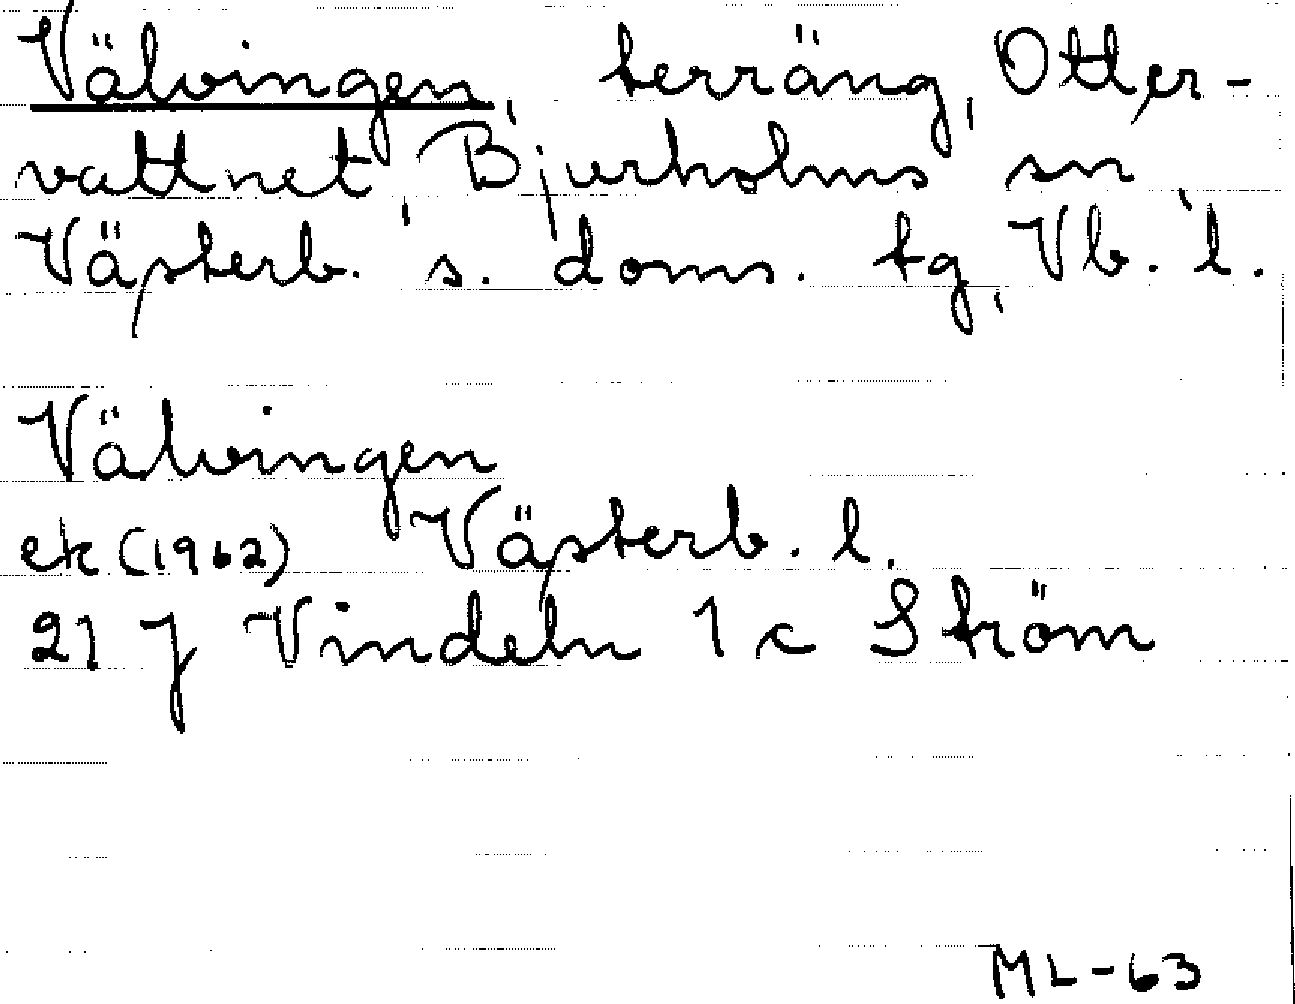 Välvingen, terräng, Otter-
vattnet, Bjurholms sn,
Västerb. s. doms. tg, Vb. l.
Välvingen
ek (1962) Västerb. l.
21 J Vindeln 1 c Ström
ML-63